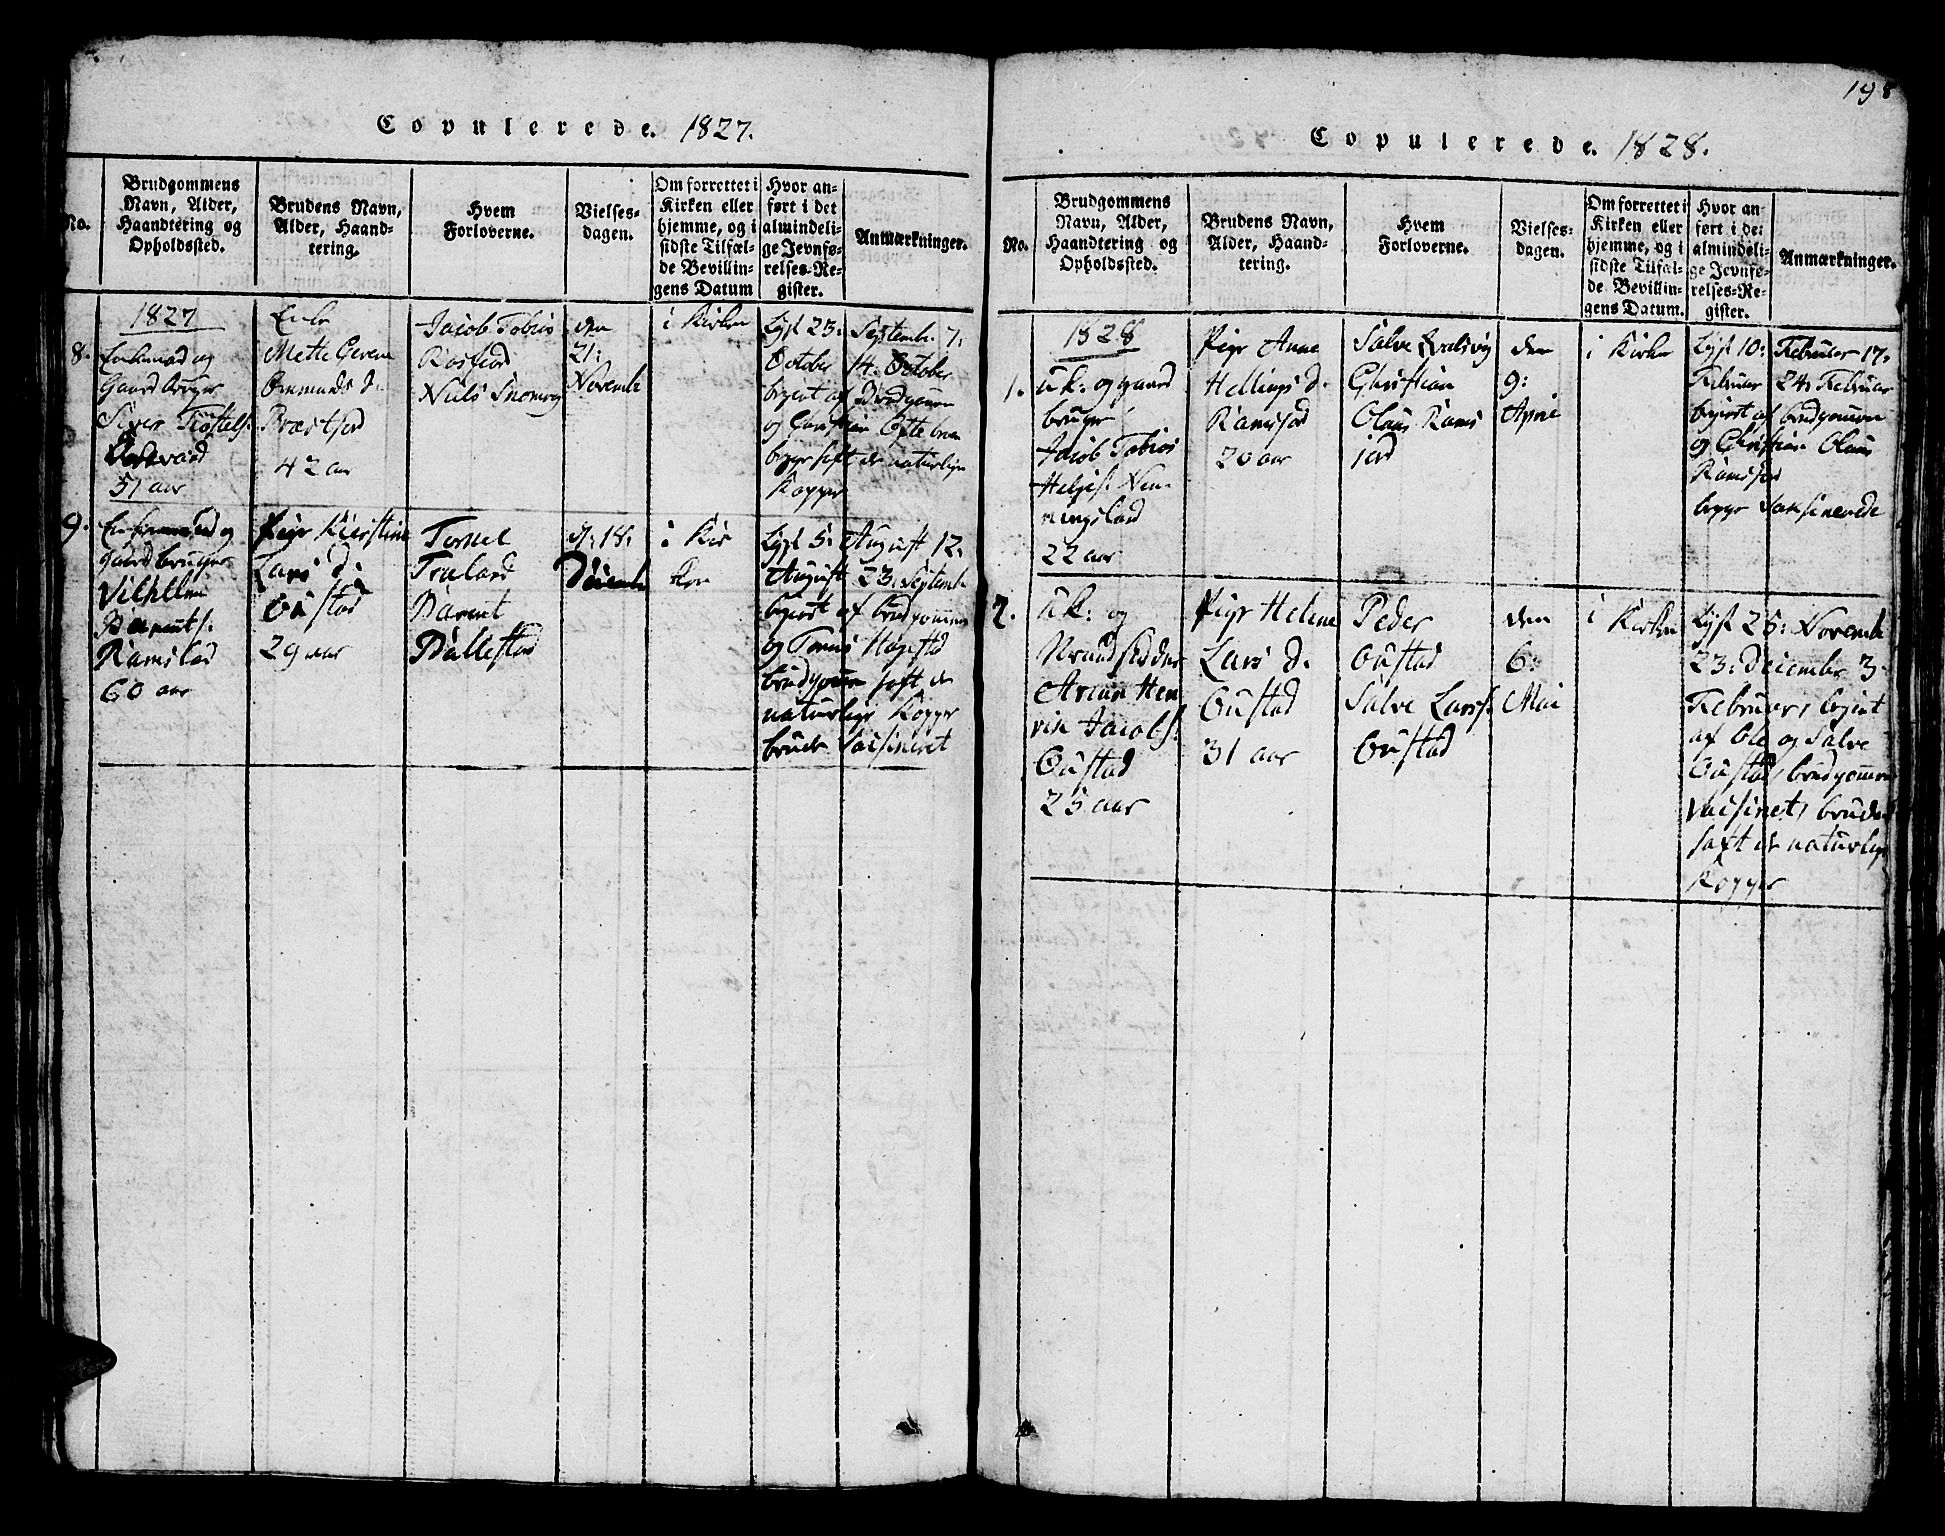 198
Copulerede. 1827.
No.
Brudgommens
Navn, Alder,
Haandtering og
Opholdssted.
Brudens Navn,
Alder, Haand-
tering.
Hvem
Forloverne.
Vielses-
dagen.
Om forrettet i
Kirken eller
hjemme, og i
sidste Tilfæl-
de Bevillin-
gens Datum
Hvor an-
ført i det
almindeli-
ge Jevnfø-
relses-Re-
gister.
Anmærkninger.
8.
1827
Enkemad og
Gaard bruger
Siver
51 aar
Enke
Mette
Ommunds d.
42 aar
Jacob Tobias
Niels
den
21:
Novembr
i Kirken
Lyst 23: Septembr. 7:
October 14. October
begiert af Brudgomen
og Christian
haft de naturlige
Kopper
9.
Enkemad og
gaard bruger
Vilhelm
Barents.
Ramslad
60 aar
Pige Kirstine
Lars d.
Oustad
29 aar
Tornel
Traland
Barent
Ballestad
d: 18:
Decembr
i Kir
ken
Lyst 5: August 12:
August 23: Septembr
begiert af brudgommen
og Tomas Hagestad
brudgomen haft de
naturlige Kopper
bruden Vaisineret
Copulerede. 1828.
No.
Brudgommens
Navn, Alder,
Haandtering og
Opholdssted.
Brudens Navn,
Alder, Haand-
tering.
Hvem
Forloverne.
Vielses-
dagen.
Om forrettet i
Kirken eller
hjemme, og i
sidste Tilfæl-
de Bevillin-
gens Datum.
Hvor an-
ført i det
almindeli-
ge Jevnfø-
relses-Re-
gister.
Anmærkninger.
1.
1828
u.k: og gaard
bruger
Jacob Tobias
Helges.
22 aar
Pige Anne
Hellings d.
Ramsjord
20 aar
Salve
Christian
Olaus Rams
jord
den
9:
April
i Kirken
Lyst 10: Februar 17:
Februar 24: Februar
begiert af brudgomen
og Christian Olaus
Ramsjord
begge Vansinerede
2.
u.k: og
Strandsidder
Jacobs:
Oustad
25 aar
Pige Helene
Lars d.
Oustad
31 aar
Peder
Oustad
Salve Larss.
Oustad
den
6:
Mai
i Kirken
Lyst 25: Novembr
23: December 3.
Februar, begiert
af Ole og Salve
Oustad, brudgomen
Vaisinet, bruden
haft de naturlige
Kopper